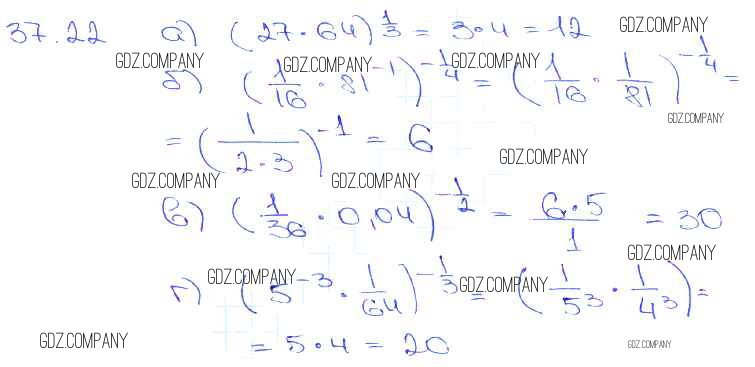 37.22 а) (27·64)^(1/3) = 3·4 = 12 GDZ.COMPANY
GDZ.COMPANY GDZ.COMPANY GDZ.COMPANY
б) (1/16 · 81^(-1))^(-1/4) = (1/16 · 1/81)^(-1/4) =
GDZ.COMPANY
= (1/(2·3))^(-1) = 6
GDZ.COMPANY
GDZ.COMPANY GDZ.COMPANY
в) (1/36 · 0,04)^(-1/2) = (6·5)/1 = 30
GDZ.COMPANY
GDZ.COMPANY GDZ.COMPANY
г) (5^(-3) · 1/64)^(-1/3) = (1/5^3 · 1/4^3) =
= 5·4 = 20
GDZ.COMPANY GDZ.COMPANY